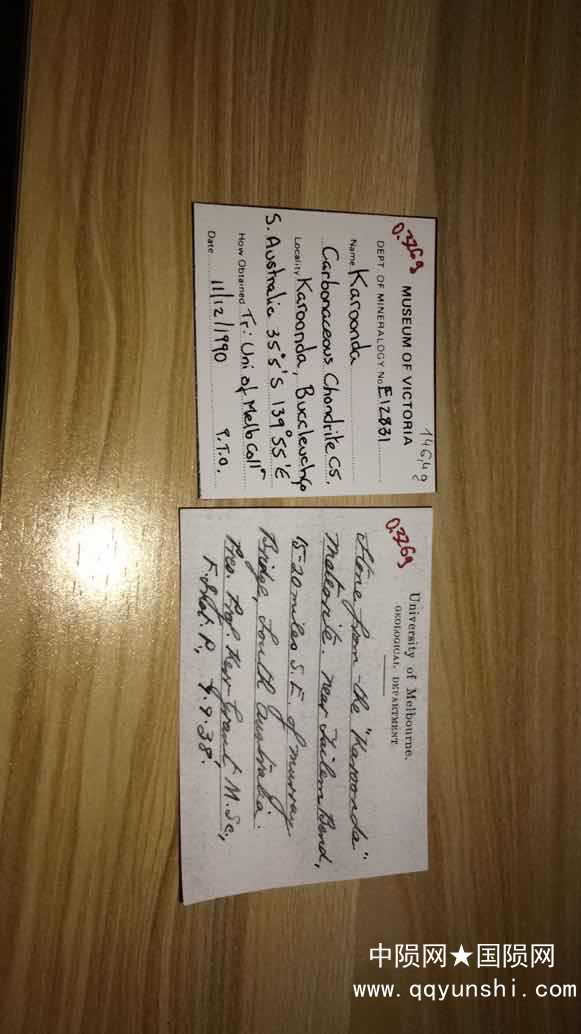 146,4 g
0.376g
MUSEUM OF VICTORIA
DEPT. OF MINERALOGY No. E12831
Name Karoonda
Carbonaceous Chondrite C5.
Locality Karoonda, Buccleuch Co
S. Australia 35°5'S 139°55'E
How Obtained Tr: Uni of Melb Coll^n
Date 11/12/1990 P.T.O.
0.376g
University of Melbourne.
GEOLOGICAL DEPARTMENT
Stone from the "Karoonda"
Meteorite. near Tailem Bend,
15-20 miles S.E. of Murray
Bridge, South Australia.
Pres. Prof. Kerr Grant, M.Sc.,
F. Inst. P., 9.38.
中陨网★国陨网
www.qqyunshi.com